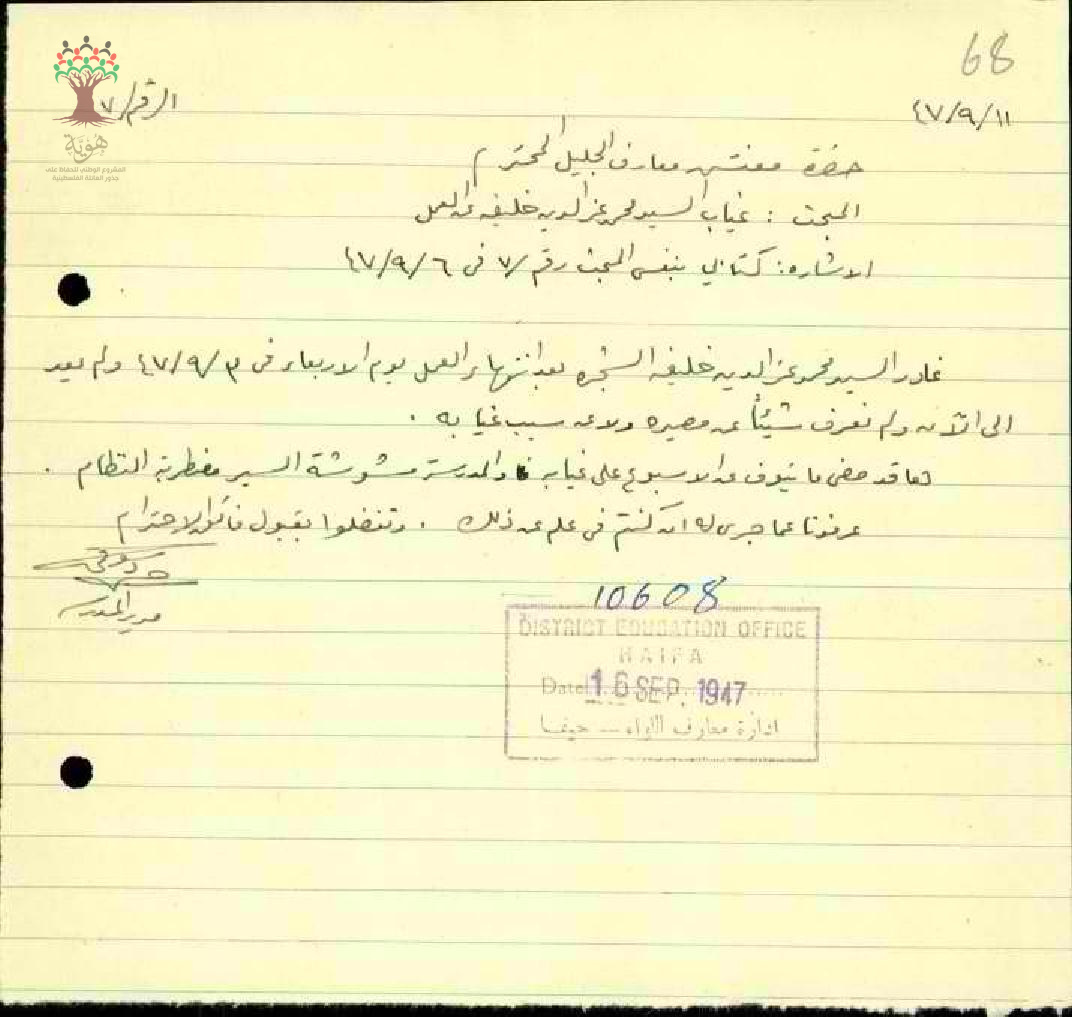 68
٤٧/٩/١١
الرقم/٧
هوية
المشروع الوطني للحفاظ على
جذور العائلة الفلسطينية
حضرة مفتش معارف الجليل المحترم
المبحث : غياب السيد محمد عزالدين خليفه عن العمل
الاشاره: كتابي بنفس المبحث رقم ٧/ في ٤٧/٩/٦
غادر السيد محمد عزالدين خليفه الشجره بعد انتهاء العمل يوم الاربعاء في ٤٧/٩/٣ ولم يعد
الى الآن ولم نعرف شيئاً عن مصيره ولا عن سبب غيابه .
ها قد مضى ما ينوف عن الاسبوع على غيابه والمدرسة مشوشة السير مضطربة النظام .
عرفونا عما جرى له ان كنتم في علم عن ذلك . وتفضلوا بقبول فائق الاحترام
مدير المدرسه
10608
DISTRICT EDUCATION OFFICE
HAIFA
Date 16 SEP. 1947
ادارة معارف اللواء — حيفا